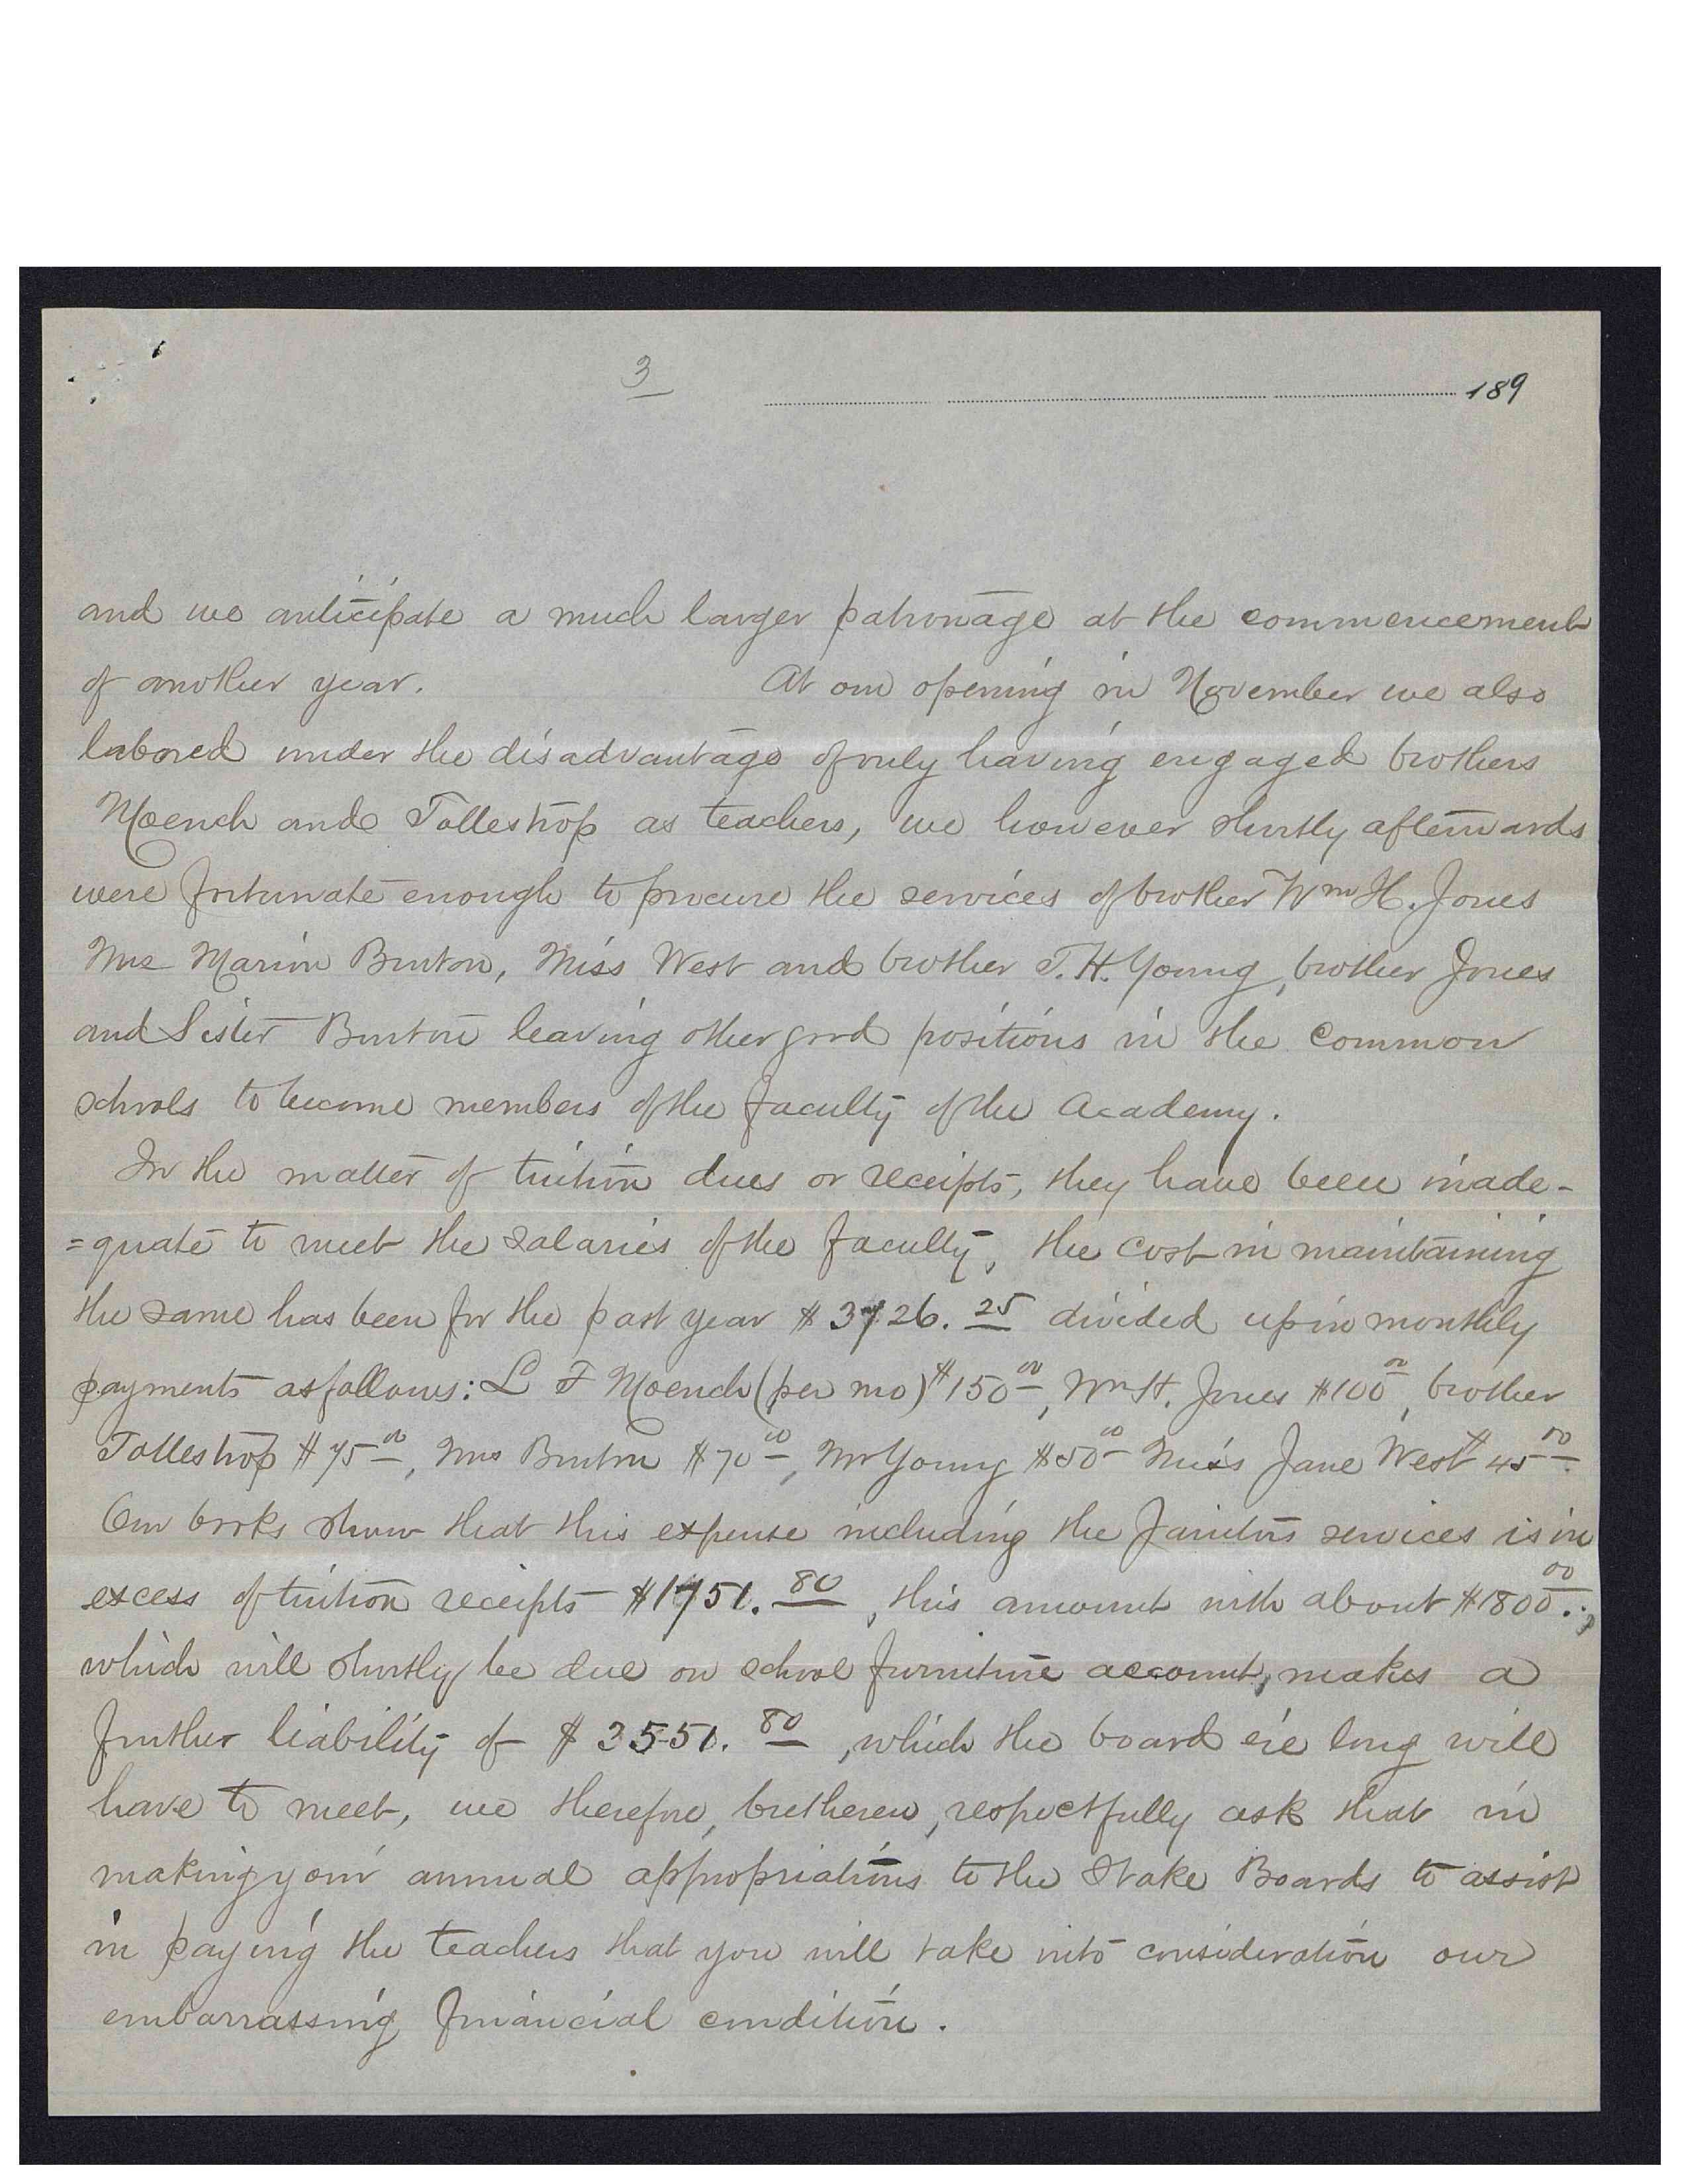 3
189
and we anticipate a much larger patronage at the commencement
of another year. At our opening in November we also
labored under the disadvantage of only having engaged brothers
Moench and Tollestrop as teachers, we however shortly afterwards
were fortunate enough to procure the services of brother Wm H. Jones
Mrs Marion Burton, Miss West and brother T. H. Young, brother Jones
and Sister Burton leaving other good positions in the common
schools to become members of the faculty of the Academy.
In the matter of tuition dues or receipts, they have been inade-
=quate to meet the salaries of the faculty, the cost in maintaining
the same has been for the past year $3726.25 divided up in monthly
payments as follows: L F Moench (per mo) $150 00, Wm H. Jones $100 00, brother
Tollestrop $75 00, Mrs Burton $70 00, Mr Young $50 00 Miss Jane West $45 00.
Our books show that this expense including the Janitors services is in
excess of tuition receipts $1751.80, this amount with about $1800.00,
which will shortly be due on school furniture account, makes a
further liability of $3551.80, which the board e're long will
have to meet, we therefore, bretheren, respectfully ask that in
making your annual appropriations to the Stake Boards to assist
in paying the teachers that you will take into consideration our
embarrassing financial condition.